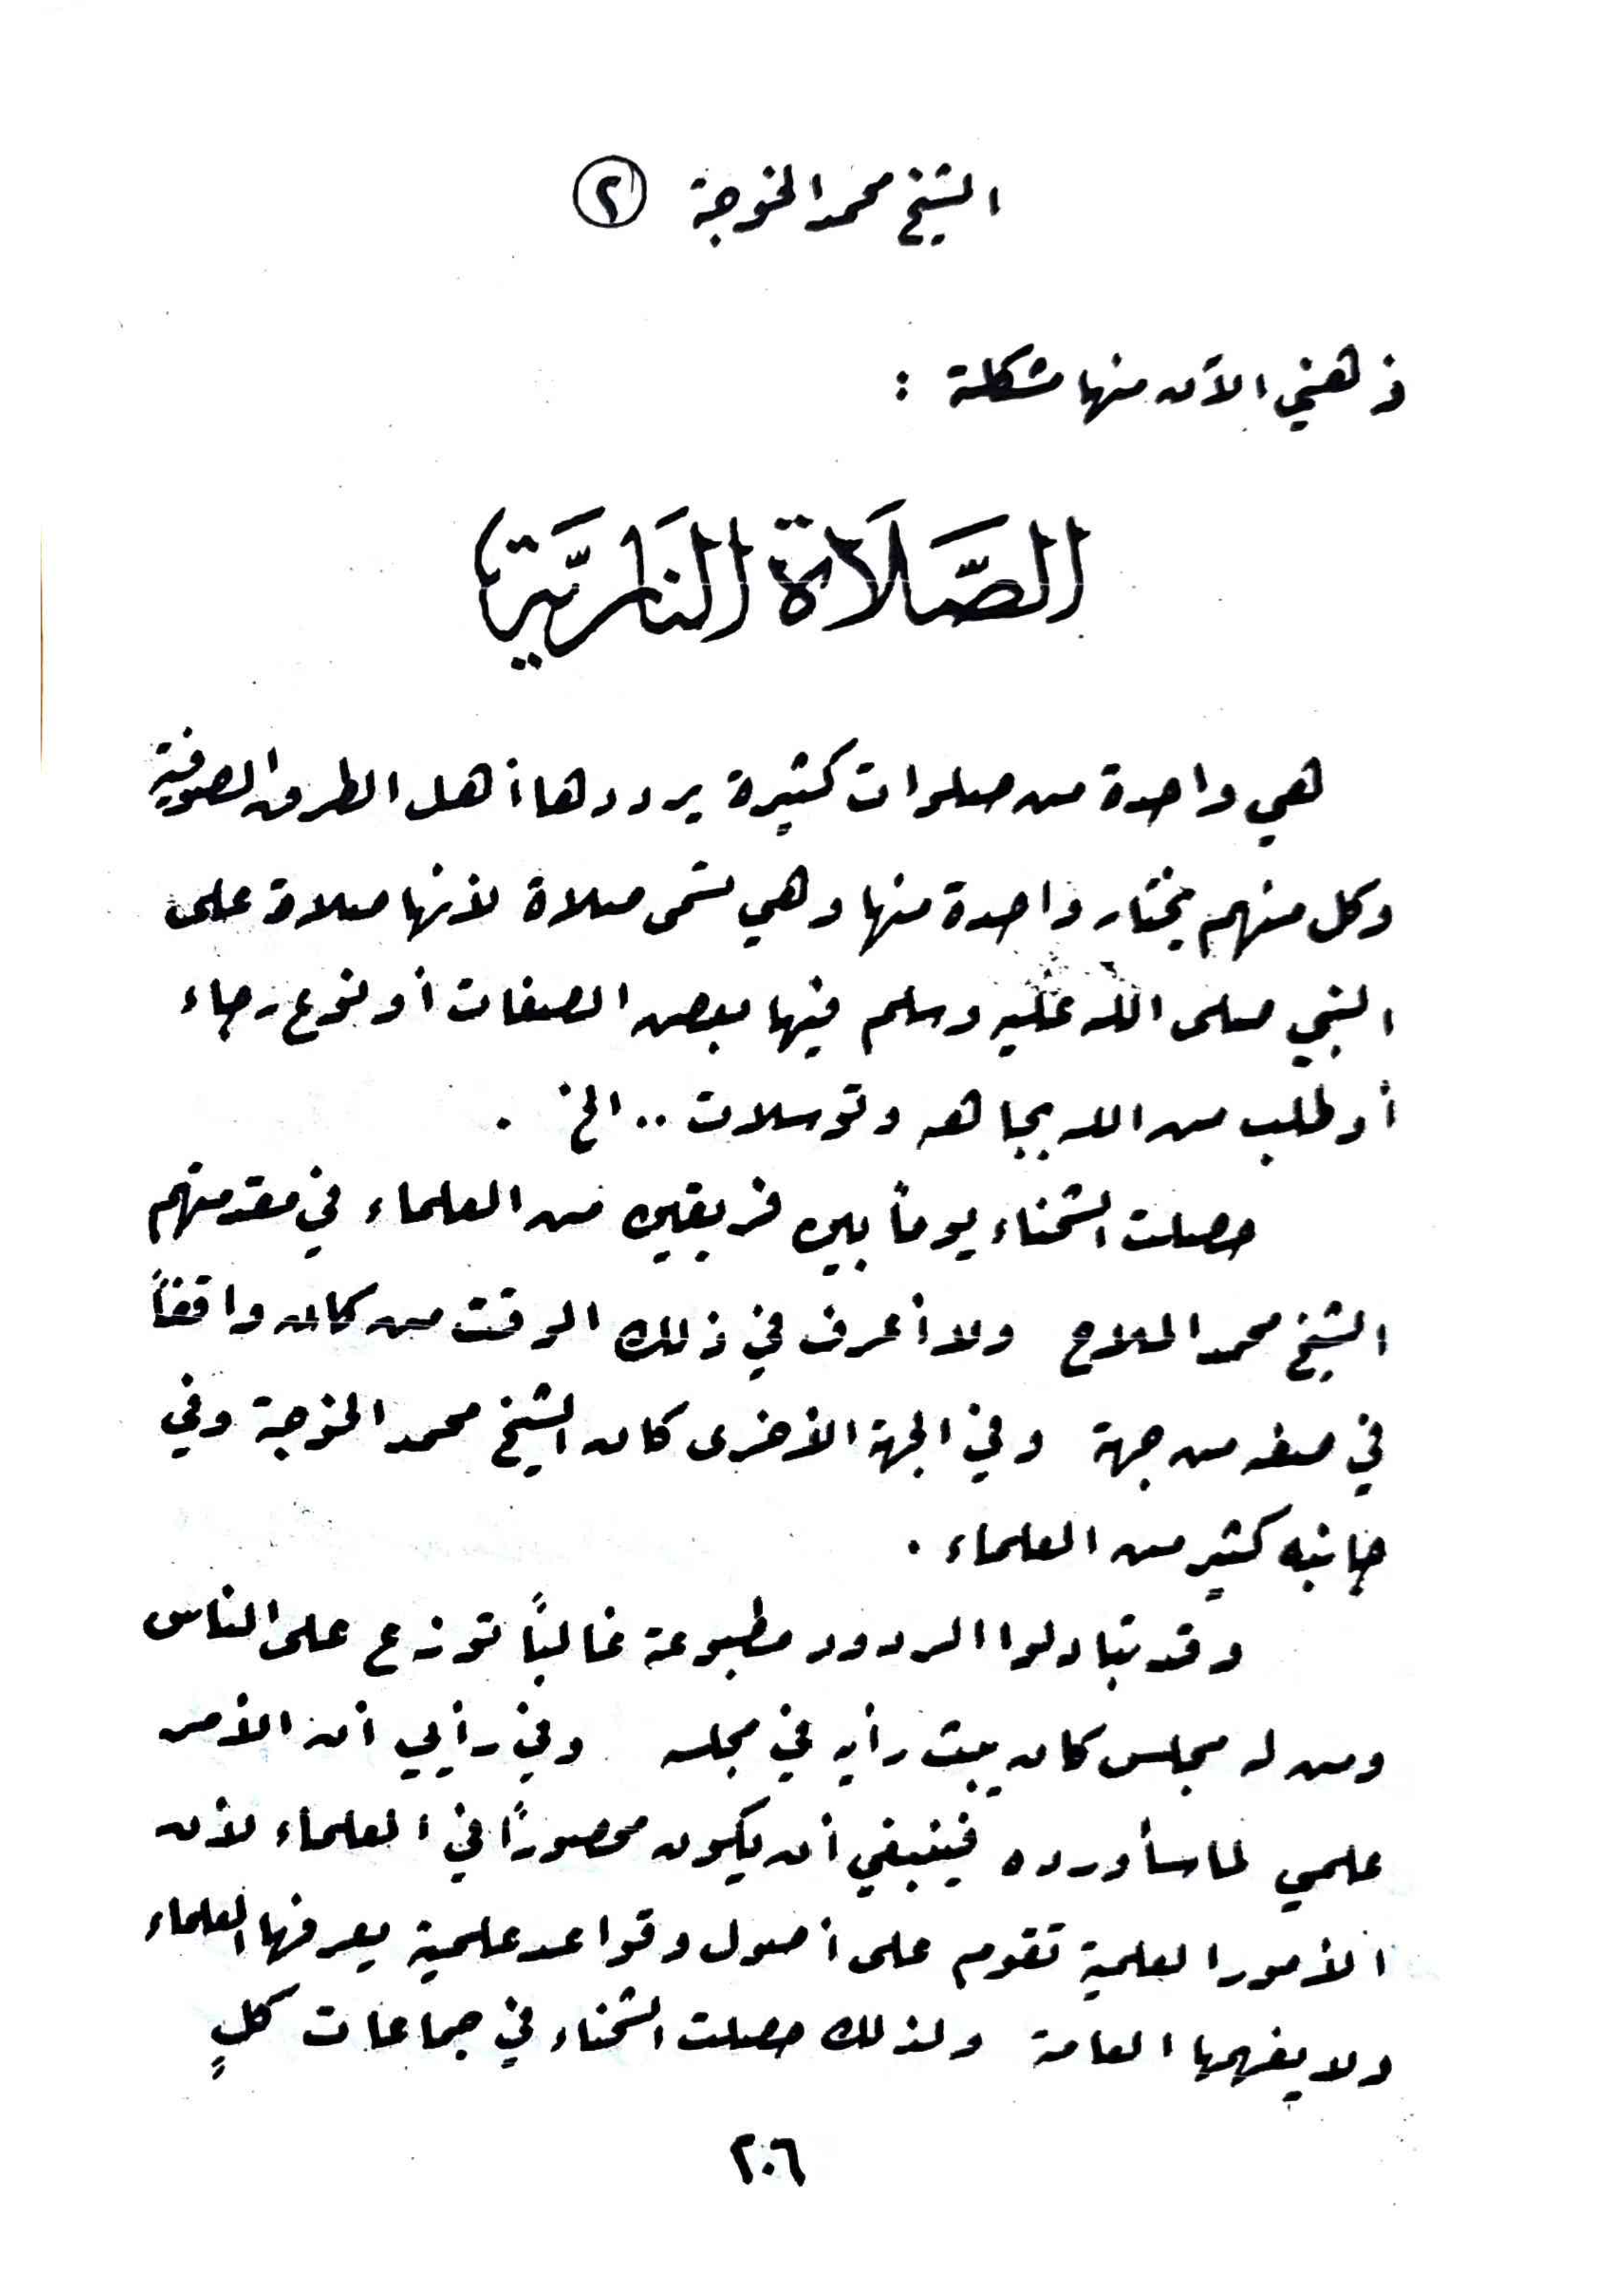 الشيخ محمد الخوجة ٢
ذهني الآن منها مشكلة :
الصَّلَاة النَارِيَّة
هي واحدة من صلوات كثيرة يرددها أهل الطرق الصوفية
وكل منهم يختار واحدة منها وهي تسمى صلاة لأنها صلاة على
النبي صلى الله عليه وسلم فيها بعض الصفات أو نوع رجاء
أو طلب من الله بجاهه وتوسلات .. الخ .
حصلت الشحناء يوماً بين فريقين من العلماء في مقدمتهم
الشيخ محمد الملاح ولا أعرف في ذلك الوقت من كان واقفاً
في صفه من جهة وفي الجهة الأخرى كان الشيخ محمد الخوجة وفي
جانبه كثير من العلماء .
وقد تبادلوا الردود مطبوعة غالباً توزع على الناس
ومن له مجلس كان يبث رأيه في مجلسه وفي رأيي أن الأمر
علمي لما سأورده فينبغي أن يكون محصوراً في العلماء لأن
الأمور العلمية تقوم على أصول وقواعد علمية يعرفها العلماء
ولا يفهمها العامة ولذلك حصلت الشحناء في جماعات كلٍ
٢٠٦